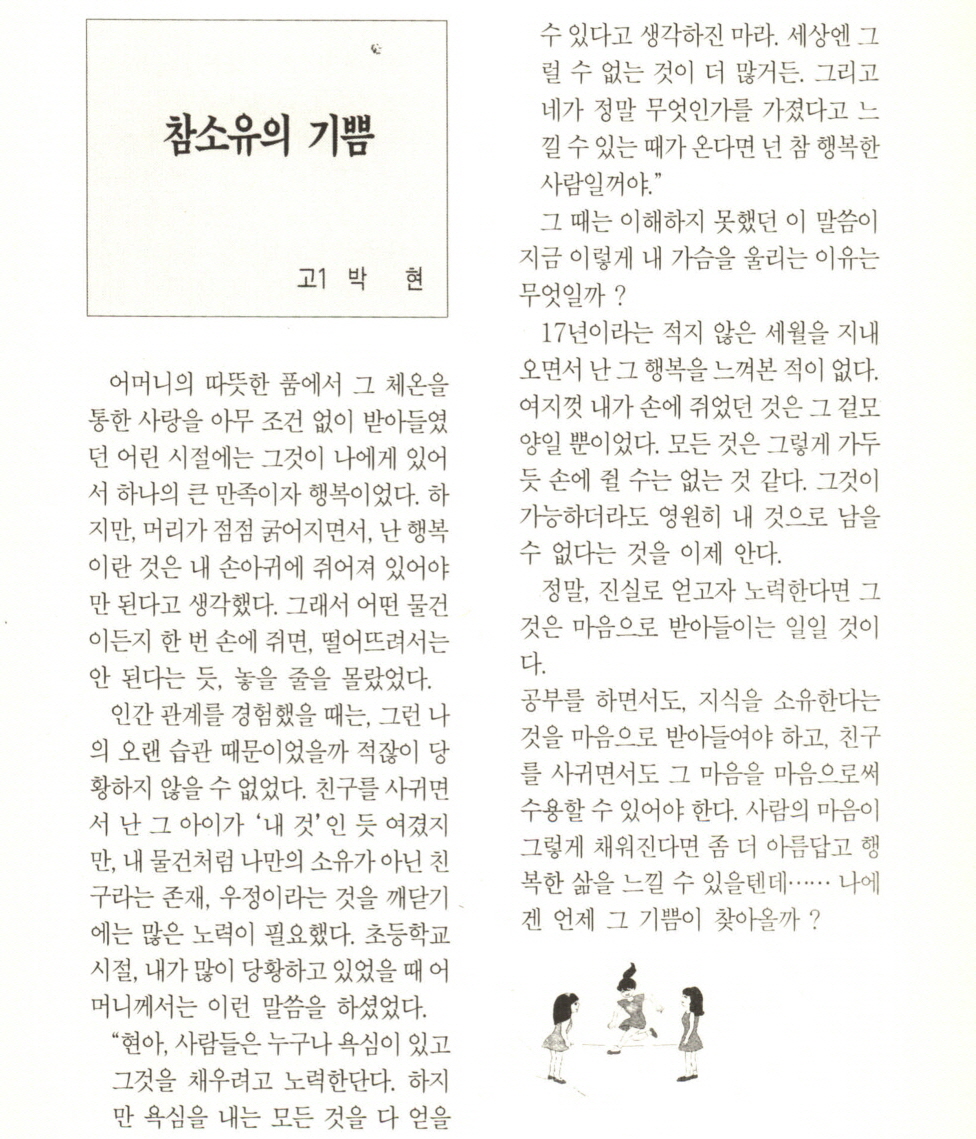 참소유의 기쁨
고1 박 현
어머니의 따뜻한 품에서 그 체온을
통한 사랑을 아무 조건 없이 받아들였
던 어린 시절에는 그것이 나에게 있어
서 하나의 큰 만족이자 행복이었다. 하
지만, 머리가 점점 굵어지면서, 난 행복
이란 것은 내 손아귀에 쥐어져 있어야
만 된다고 생각했다. 그래서 어떤 물건
이든지 한 번 손에 쥐면, 떨어뜨려서는
안 된다는 듯, 놓을 줄을 몰랐었다.
인간 관계를 경험했을 때는, 그런 나
의 오랜 습관 때문이었을까 적잖이 당
황하지 않을 수 없었다. 친구를 사귀면
서 난 그 아이가 ‘내 것’인 듯 여겼지
만, 내 물건처럼 나만의 소유가 아닌 친
구라는 존재, 우정이라는 것을 깨닫기
에는 많은 노력이 필요했다. 초등학교
시절, 내가 많이 당황하고 있었을 때 어
머니께서는 이런 말씀을 하셨었다.
“현아, 사람들은 누구나 욕심이 있고
그것을 채우려고 노력한단다. 하지
만 욕심을 내는 모든 것을 다 얻을
수 있다고 생각하진 마라. 세상엔 그
럴 수 없는 것이 더 많거든. 그리고
네가 정말 무엇인가를 가졌다고 느
낄 수 있는 때가 온다면 넌 참 행복한
사람일꺼야.”
그 때는 이해하지 못했던 이 말씀이
지금 이렇게 내 가슴을 울리는 이유는
무엇일까 ?
17년이라는 적지 않은 세월을 지내
오면서 난 그 행복을 느껴본 적이 없다.
여지껏 내가 손에 쥐었던 것은 그 겉모
양일 뿐이었다. 모든 것은 그렇게 가두
듯 손에 쥘 수는 없는 것 같다. 그것이
가능하더라도 영원히 내 것으로 남을
수 없다는 것을 이제 안다.
정말, 진실로 얻고자 노력한다면 그
것은 마음으로 받아들이는 일일 것이
다.
공부를 하면서도, 지식을 소유한다는
것을 마음으로 받아들여야 하고, 친구
를 사귀면서도 그 마음을 마음으로써
수용할 수 있어야 한다. 사람의 마음이
그렇게 채워진다면 좀 더 아름답고 행
복한 삶을 느낄 수 있을텐데…… 나에
겐 언제 그 기쁨이 찾아올까 ?